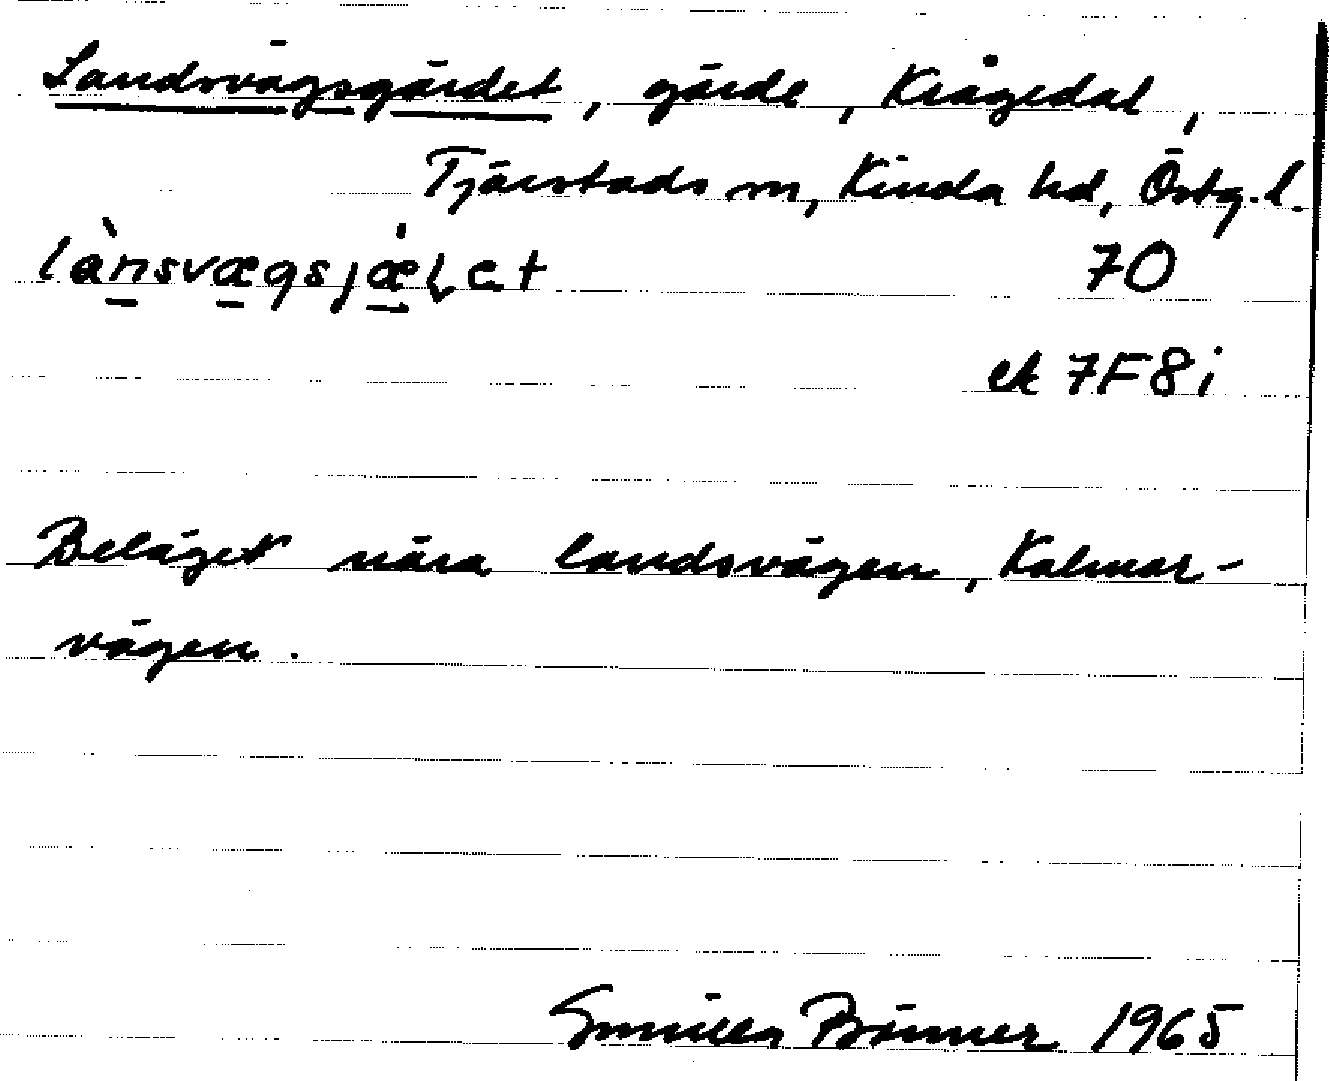 Landsvägsgärdet, gärde, Krågedal,
Tjärstads sn, Kinda hd, Östg. l.
lànsvægsjæ̀ɖet 70
ek 7F8i
Beläget nära landsvägen, Kalmar-
vägen.
Gunilla Brönner 1965